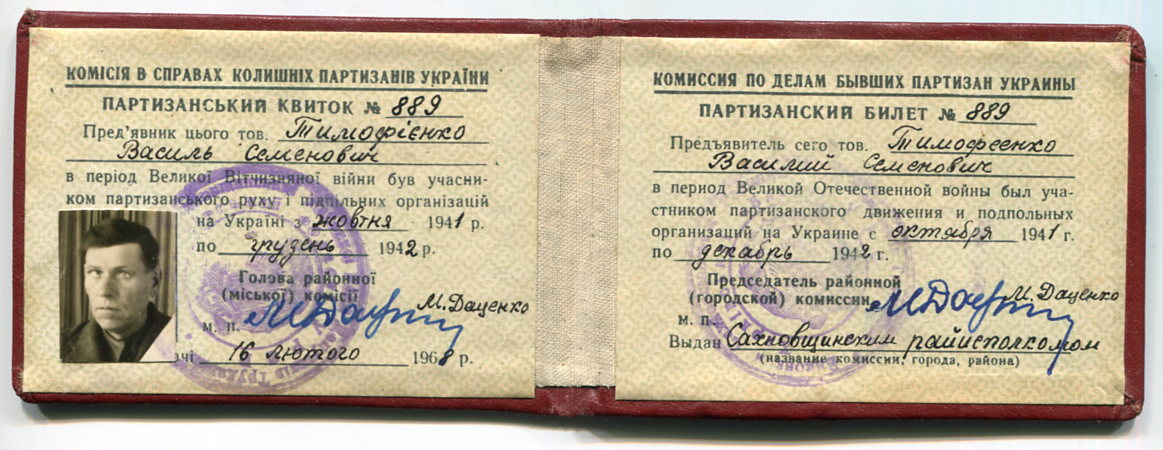 КОМІСІЯ В СПРАВАХ КОЛИШНІХ ПАРТИЗАНІВ УКРАЇНИ
ПАРТИЗАНСЬКИЙ КВИТОК № 889
Пред'явник цього тов. Тимофієнко
Василь Семенович
в період Великої Вітчизняної війни був учасни-
ком партизанського руху і підпільних організацій
на Україні з жовтня 1941 р.
по грудень 1942 р.
Голова районної
(міської) комісії М. Даценко
м. п.
ачі 16 лютого 1968 р.
КОМИССИЯ ПО ДЕЛАМ БЫВШИХ ПАРТИЗАН УКРАИНЫ
ПАРТИЗАНСКИЙ БИЛЕТ № 889
Предъявитель сего тов. Тимофеенко
Василий Семенович
в период Великой Отечественной войны был уча-
стником партизанского движения и подпольных
организаций на Украине с октября 1941 г.
по декабрь 1942 г.
Председатель районной
(городской) комиссии М. Даценко
м. п.
Выдан Сахновщинским райисполкомом
(название комиссии, города, района)